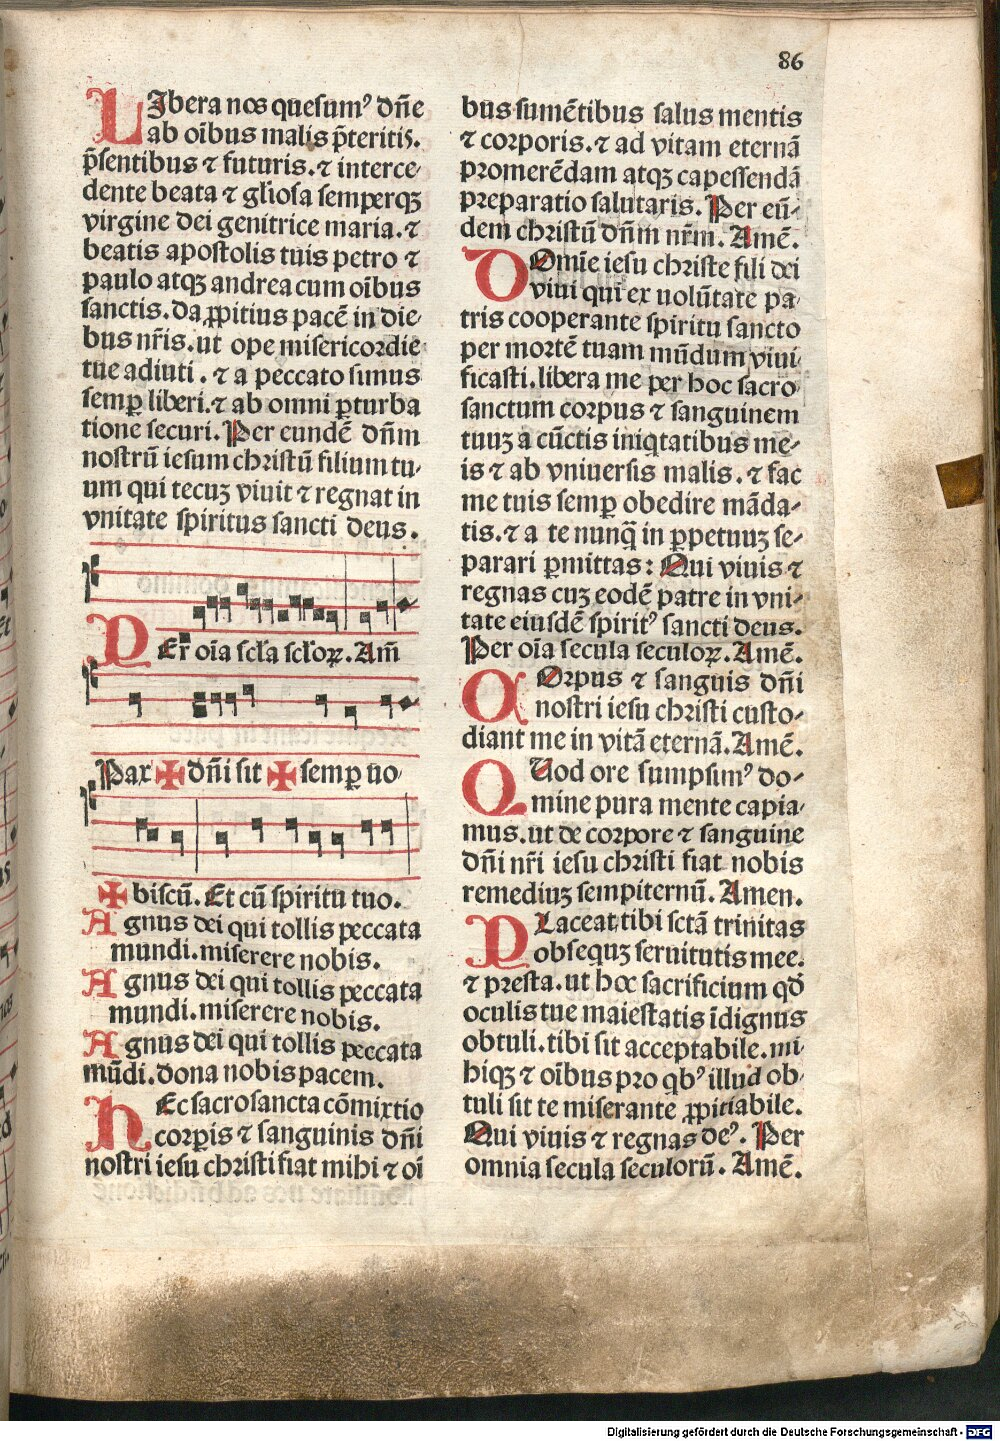 86
LIbera nos quesumꝰ dn̄e
ab oībus malis p̄teritis.
p̄sentibus ⁊ futuris. ⁊ interce-
dente beata ⁊ gl'iosa semperqꝫ
virgine dei genitrice maria. ⁊
beatis apostolis tuis petro ⁊
paulo atqꝫ andrea cum oībus
sanctis. da ꝓpitius pacē in die-
bus nr̄is. ut ope misericordie
tue adiuti. ⁊ a peccato simus
semꝑ liberi. ⁊ ab omni ꝑturba
tione securi. Per eundē dn̄m
nostrū iesum christū filium tu-
um qui tecuꝫ viuit ⁊ regnat in
vnitate spiritus sancti deus.
PEr oīa scl'a scl'oꝝ. Am̄
Pax ✠ dn̄i sit ✠ semꝑ uo-
✠ biscū. Et cū spiritu tuo.
Agnus dei qui tollis peccata
mundi. miserere nobis.
Agnus dei qui tollis peccata
mundi. miserere nobis.
Agnus dei qui tollis peccata
mūdi. dona nobis pacem.
HEc sacrosancta cōmixtio
corꝑis ⁊ sanguinis dn̄i
nostri iesu christi fiat mihi ⁊ oī
bus sumētibus salus mentis
⁊ corporis. ⁊ ad vitam eternā
promerēdam atqꝫ capessendā
preparatio salutaris. Per eū-
dem christū dn̄m nr̄m. Amē.
DOmīe iesu christe fili dei
viui qui ex uolūtate pa-
tris cooperante spiritu sancto
per mortē tuam mūdum viui-
ficasti. libera me per hoc sacro
sanctum corpus ⁊ sanguinem
tuuꝫ a cūctis iniq̇tatibus me-
is ⁊ ab vniuersis malis. ⁊ fac
me tuis semꝑ obedire māda-
tis. ⁊ a te nunq̄ in ꝑpetuuꝫ se-
parari ꝑmittas: Qui viuis ⁊
regnas cuꝫ eodē patre in vni-
tate eiusdē spiritꝰ sancti deus.
Per oīa secula seculoꝝ. Amē.
COrpus ⁊ sanguis dn̄i
nostri iesu christi custo-
diant me in vitā eternā. Amē.
QUod ore sumpsimꝰ do-
mine pura mente capia-
mus. ut de corpore ⁊ sanguine
dn̄i nr̄i iesu christi fiat nobis
remediuꝫ sempiternū. Amen.
PLaceat tibi sctā trinitas
obsequꝫ seruitutis mee.
⁊ presta. ut hoc sacrificium qd̄
oculis tue maiestatis īdignus
obtuli. tibi sit acceptabile. mi-
hiqꝫ ⁊ oībus pro qbꝰ illud ob-
tuli sit te miserante ꝓpitiabile.
Qui viuis ⁊ regnas deꝰ. Per
omnia secula seculorū. Amē.
Digitalisierung gefördert durch die Deutsche Forschungsgemeinschaft - DFG